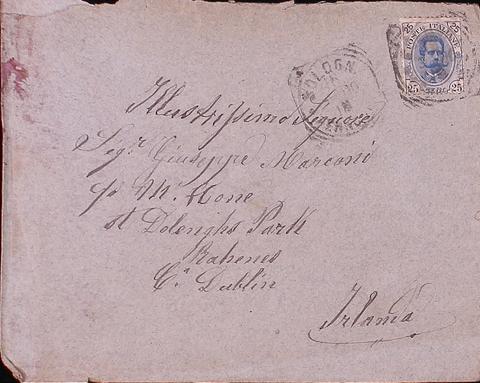 25 POSTE ITALIANE 25
25 25
BOLOGNA
Illustrissimo Signore
Sigr. Giuseppe Marconi
c/o Mr. Hone
st Dolenghs Park
Rahenes
Co. Dublin
Irlanda